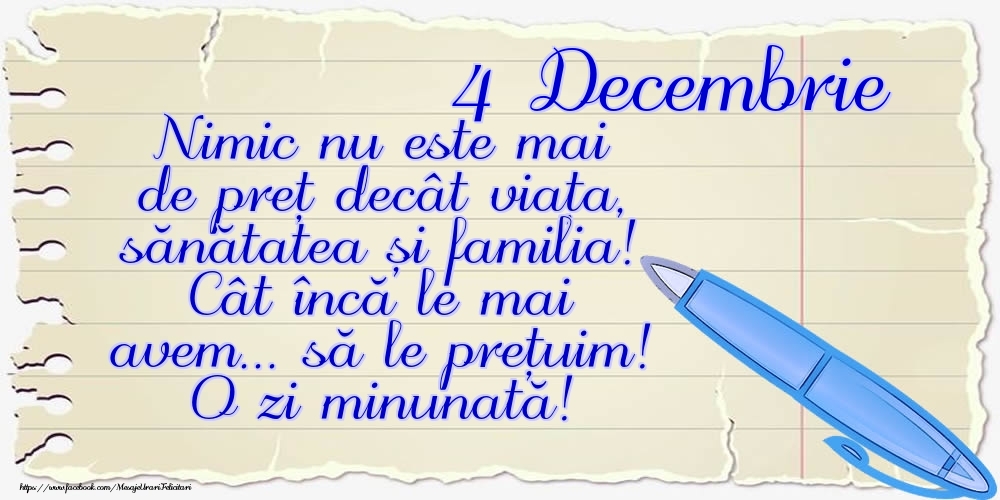 4 Decembrie
Nimic nu este mai
de preț decât viata,
sănătatea și familia!
Cât încă le mai
avem... să le prețuim!
O zi minunată!
https://www.facebook.com/MesajeUrariFelicitari